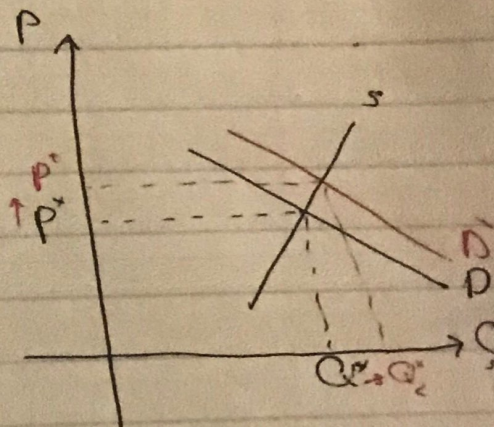 P
s
P*
↑ P*
D'
D
Q
Q* → Q*